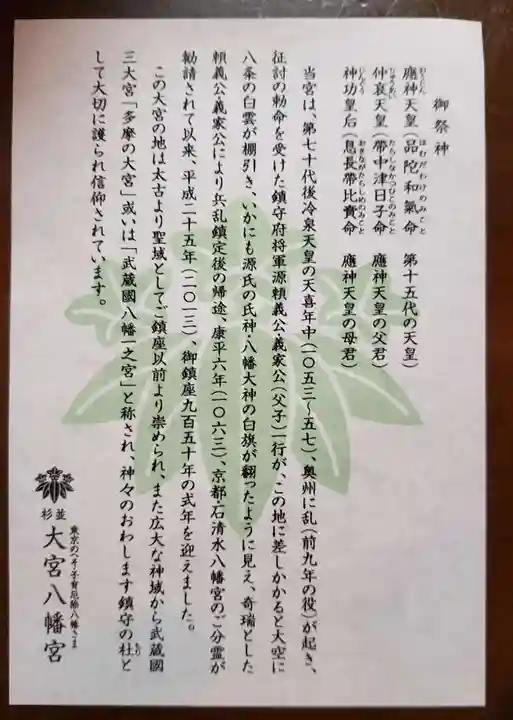 御祭神
應神天皇(品陀和氣命 第十五代の天皇)
仲哀天皇(帶中津日子命 應神天皇の父君)
神功皇后(息長帶比賣命 應神天皇の母君)
当宮は、第七十代後冷泉天皇の天喜年中(一〇五三〜五七)、奥州に乱(前九年の役)が起き、
征討の勅命を受けた鎮守府将軍源頼義公・義家公(父子)一行が、この地に差しかかると大空に
八条の白雲が棚引き、いかにも源氏の氏神・八幡大神の白旗が翻ったように見え、奇瑞とした
頼義公義家公により兵乱鎮定後の帰途、康平六年(一〇六三)、京都・石清水八幡宮のご分霊が
勧請されて以来、平成二十五年(二〇一三)、御鎮座九百五十年の式年を迎えました。
この大宮の地は太古より聖域としてご鎮座以前より崇められ、また広大な神域から武蔵國
三大宮「多摩の大宮」或いは「武蔵國八幡一之宮」と称され、神々のおわします鎮守の杜と
して大切に護られ信仰されています。
東京のへそ 子育厄除八幡さま
杉並 大宮八幡宮